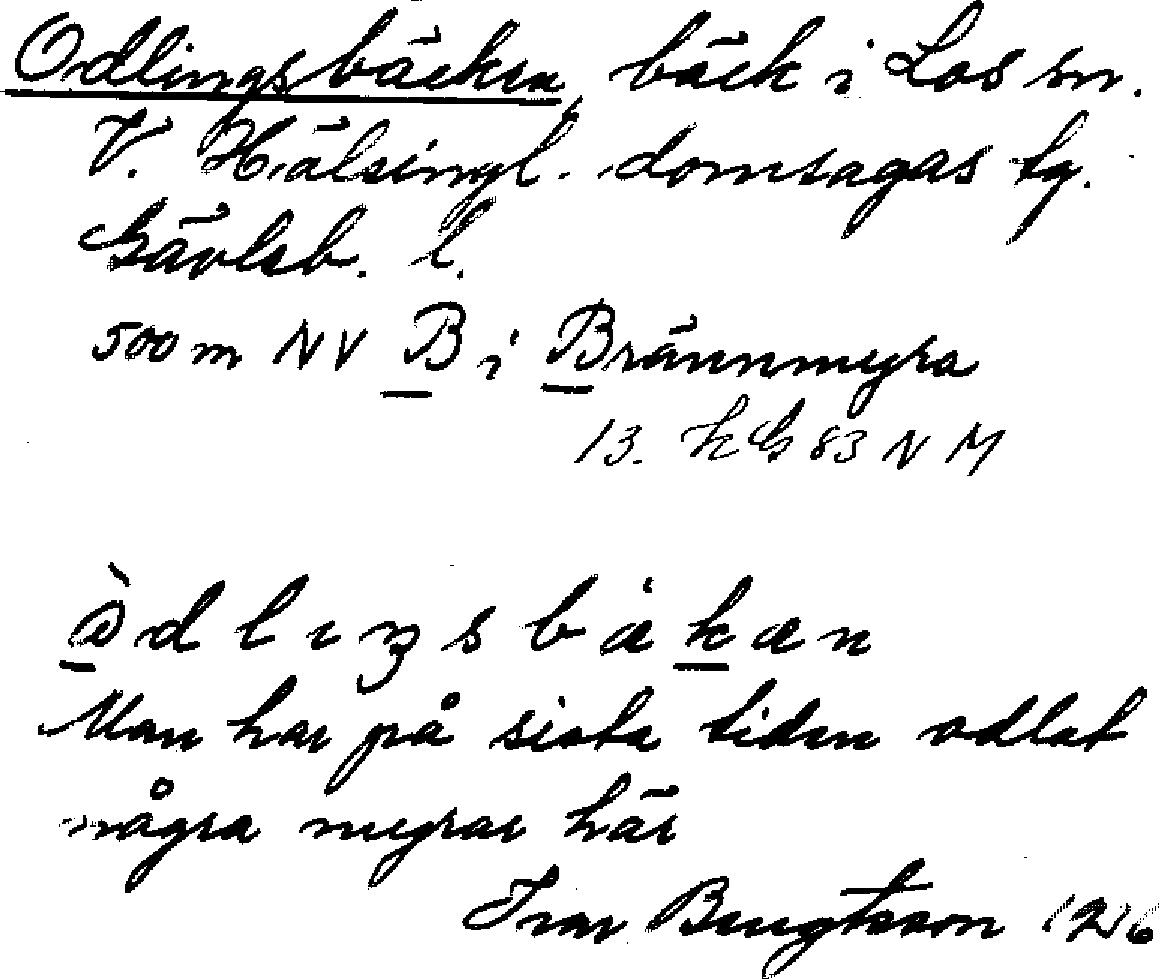 Odlingsbäcken, bäck i Los sn.
V. Hälsingl. domsagas tg.
Gävleb. l.
500 m NV B i Brännmyra
13. hG 83 NM
d l ı ŋ s b k æ n
Man har på sista tiden odlat
några myrar här
Ivar Bengtsson